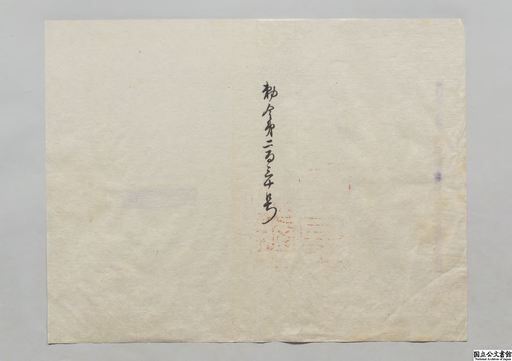 勅令第二百三十号
国立公文書館
National Archives of Japan